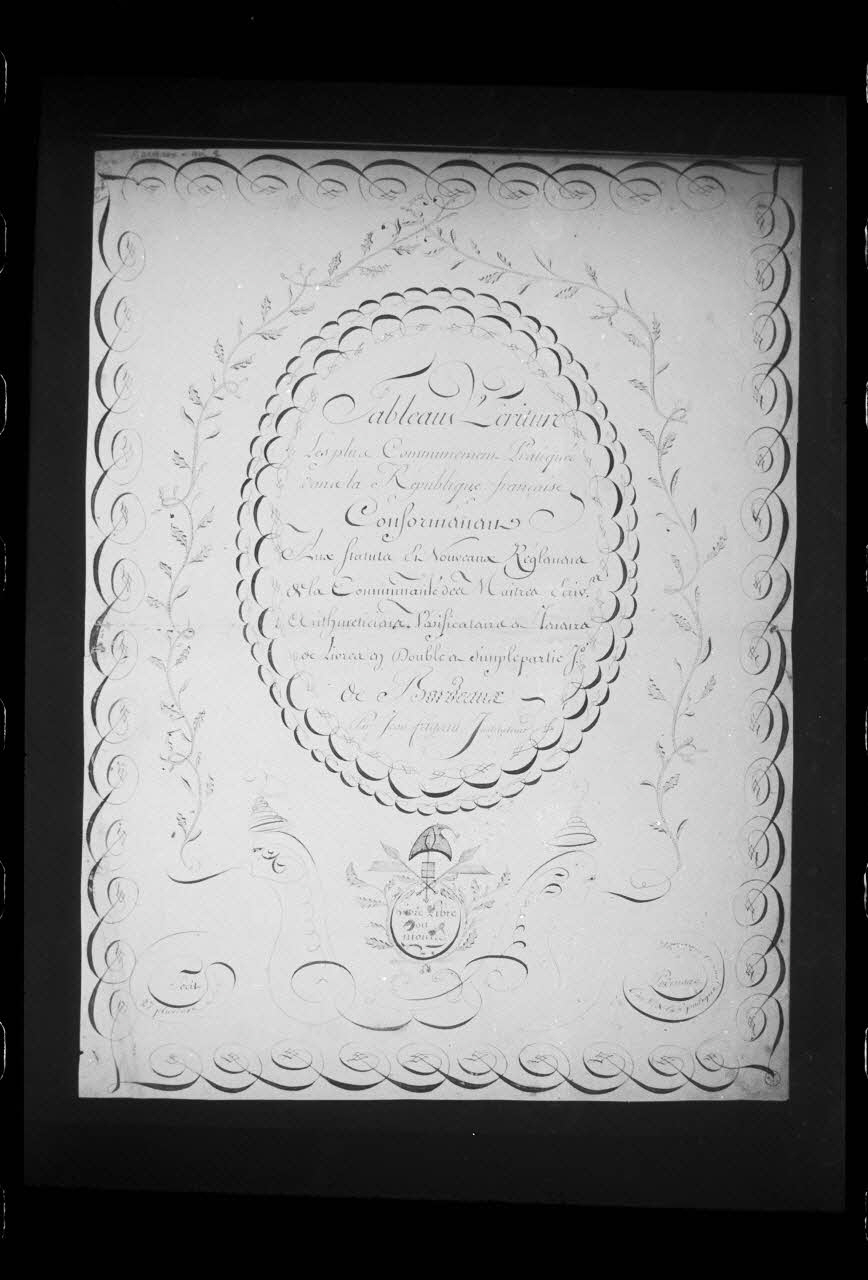 Tableau D'Ecriture
Les plus Communement Pratiquée
dans la République française
Conformément
Aux statuts Et Nouveaux Réglemens
de la Communauté des Maîtres Ecriv.ns
Arithmeticiens Vérificataires et Teneurs
de Livres en Double et simple partie
de Bordeaux
Par Jean Instituteur
Vivre Libre
ou
mourir